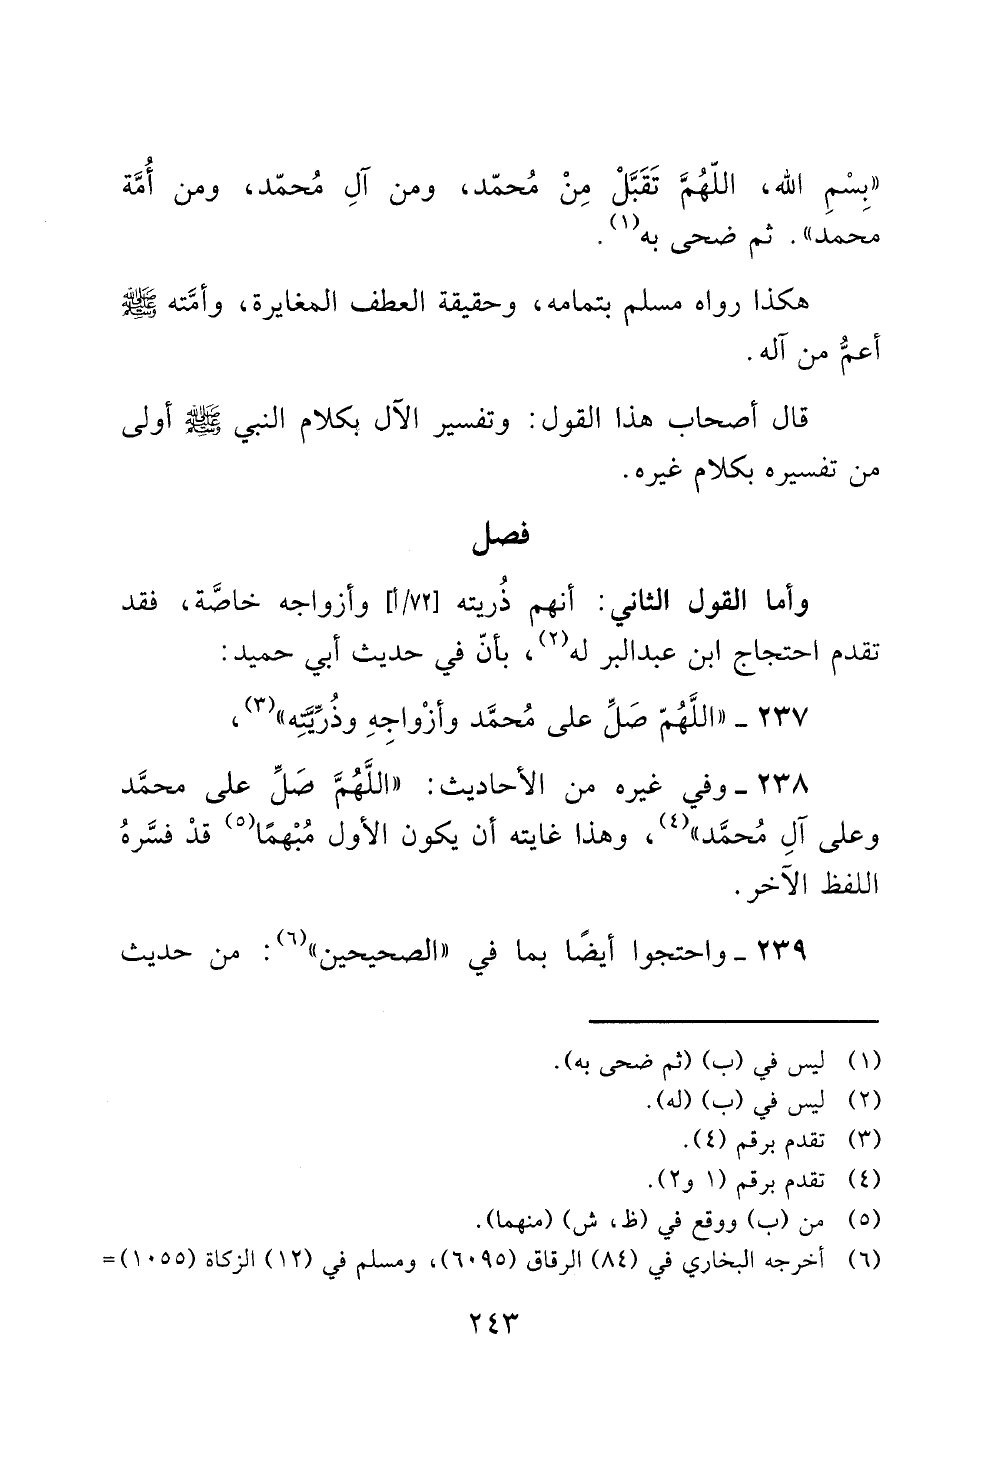 «بِسْمِ الله، اللّهُمَّ تَقَبَّلْ مِنْ مُحمّد، ومن آلِ مُحمّد، ومن أُمَّة
محمد». ثم ضحى به(١).
هكذا رواه مسلم بتمامه، وحقيقة العطف المغايرة، وأمَّته ﷺ
أعمُّ من آله.
قال أصحاب هذا القول: وتفسير الآل بكلام النبي ﷺ أولى
من تفسيره بكلام غيره.
فصل
وأما القول الثاني: أنهم ذُريته [٧٢/أ] وأزواجه خاصَّة، فقد
تقدم احتجاج ابن عبدالبر له(٢)، بأنّ في حديث أبي حميد:
٢٣٧ ـ «اللَّهُمّ صَلِّ على مُحمَّد وأزْواجِهِ وذُرِّيَّتِه»(٣)،
٢٣٨ ـ وفي غيره من الأحاديث: «اللَّهُمَّ صَلِّ على محمَّد
وعلى آلِ مُحمَّد»(٤)، وهذا غايته أن يكون الأول مُبْهمًا(٥) قدْ فسَّرهُ
اللفظ الآخر.
٢٣٩ ـ واحتجوا أيضًا بما في «الصحيحين»(٦): من حديث
(١) ليس في (ب) (ثم ضحى به).
(٢) ليس في (ب) (له).
(٣) تقدم برقم (٤).
(٤) تقدم برقم (١ و٢).
(٥) من (ب) ووقع في (ظ، ش) (منهما).
(٦) أخرجه البخاري في (٨٤) الرقاق (٦٠٩٥)، ومسلم في (١٢) الزكاة (١٠٥٥)=
٢٤٣